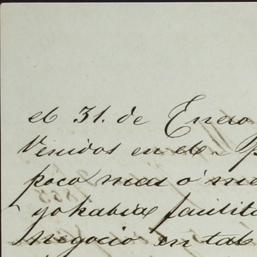 el 31. de Enero
Venidos en el
poco mas ó me
yo habia facilita
negocio en tal